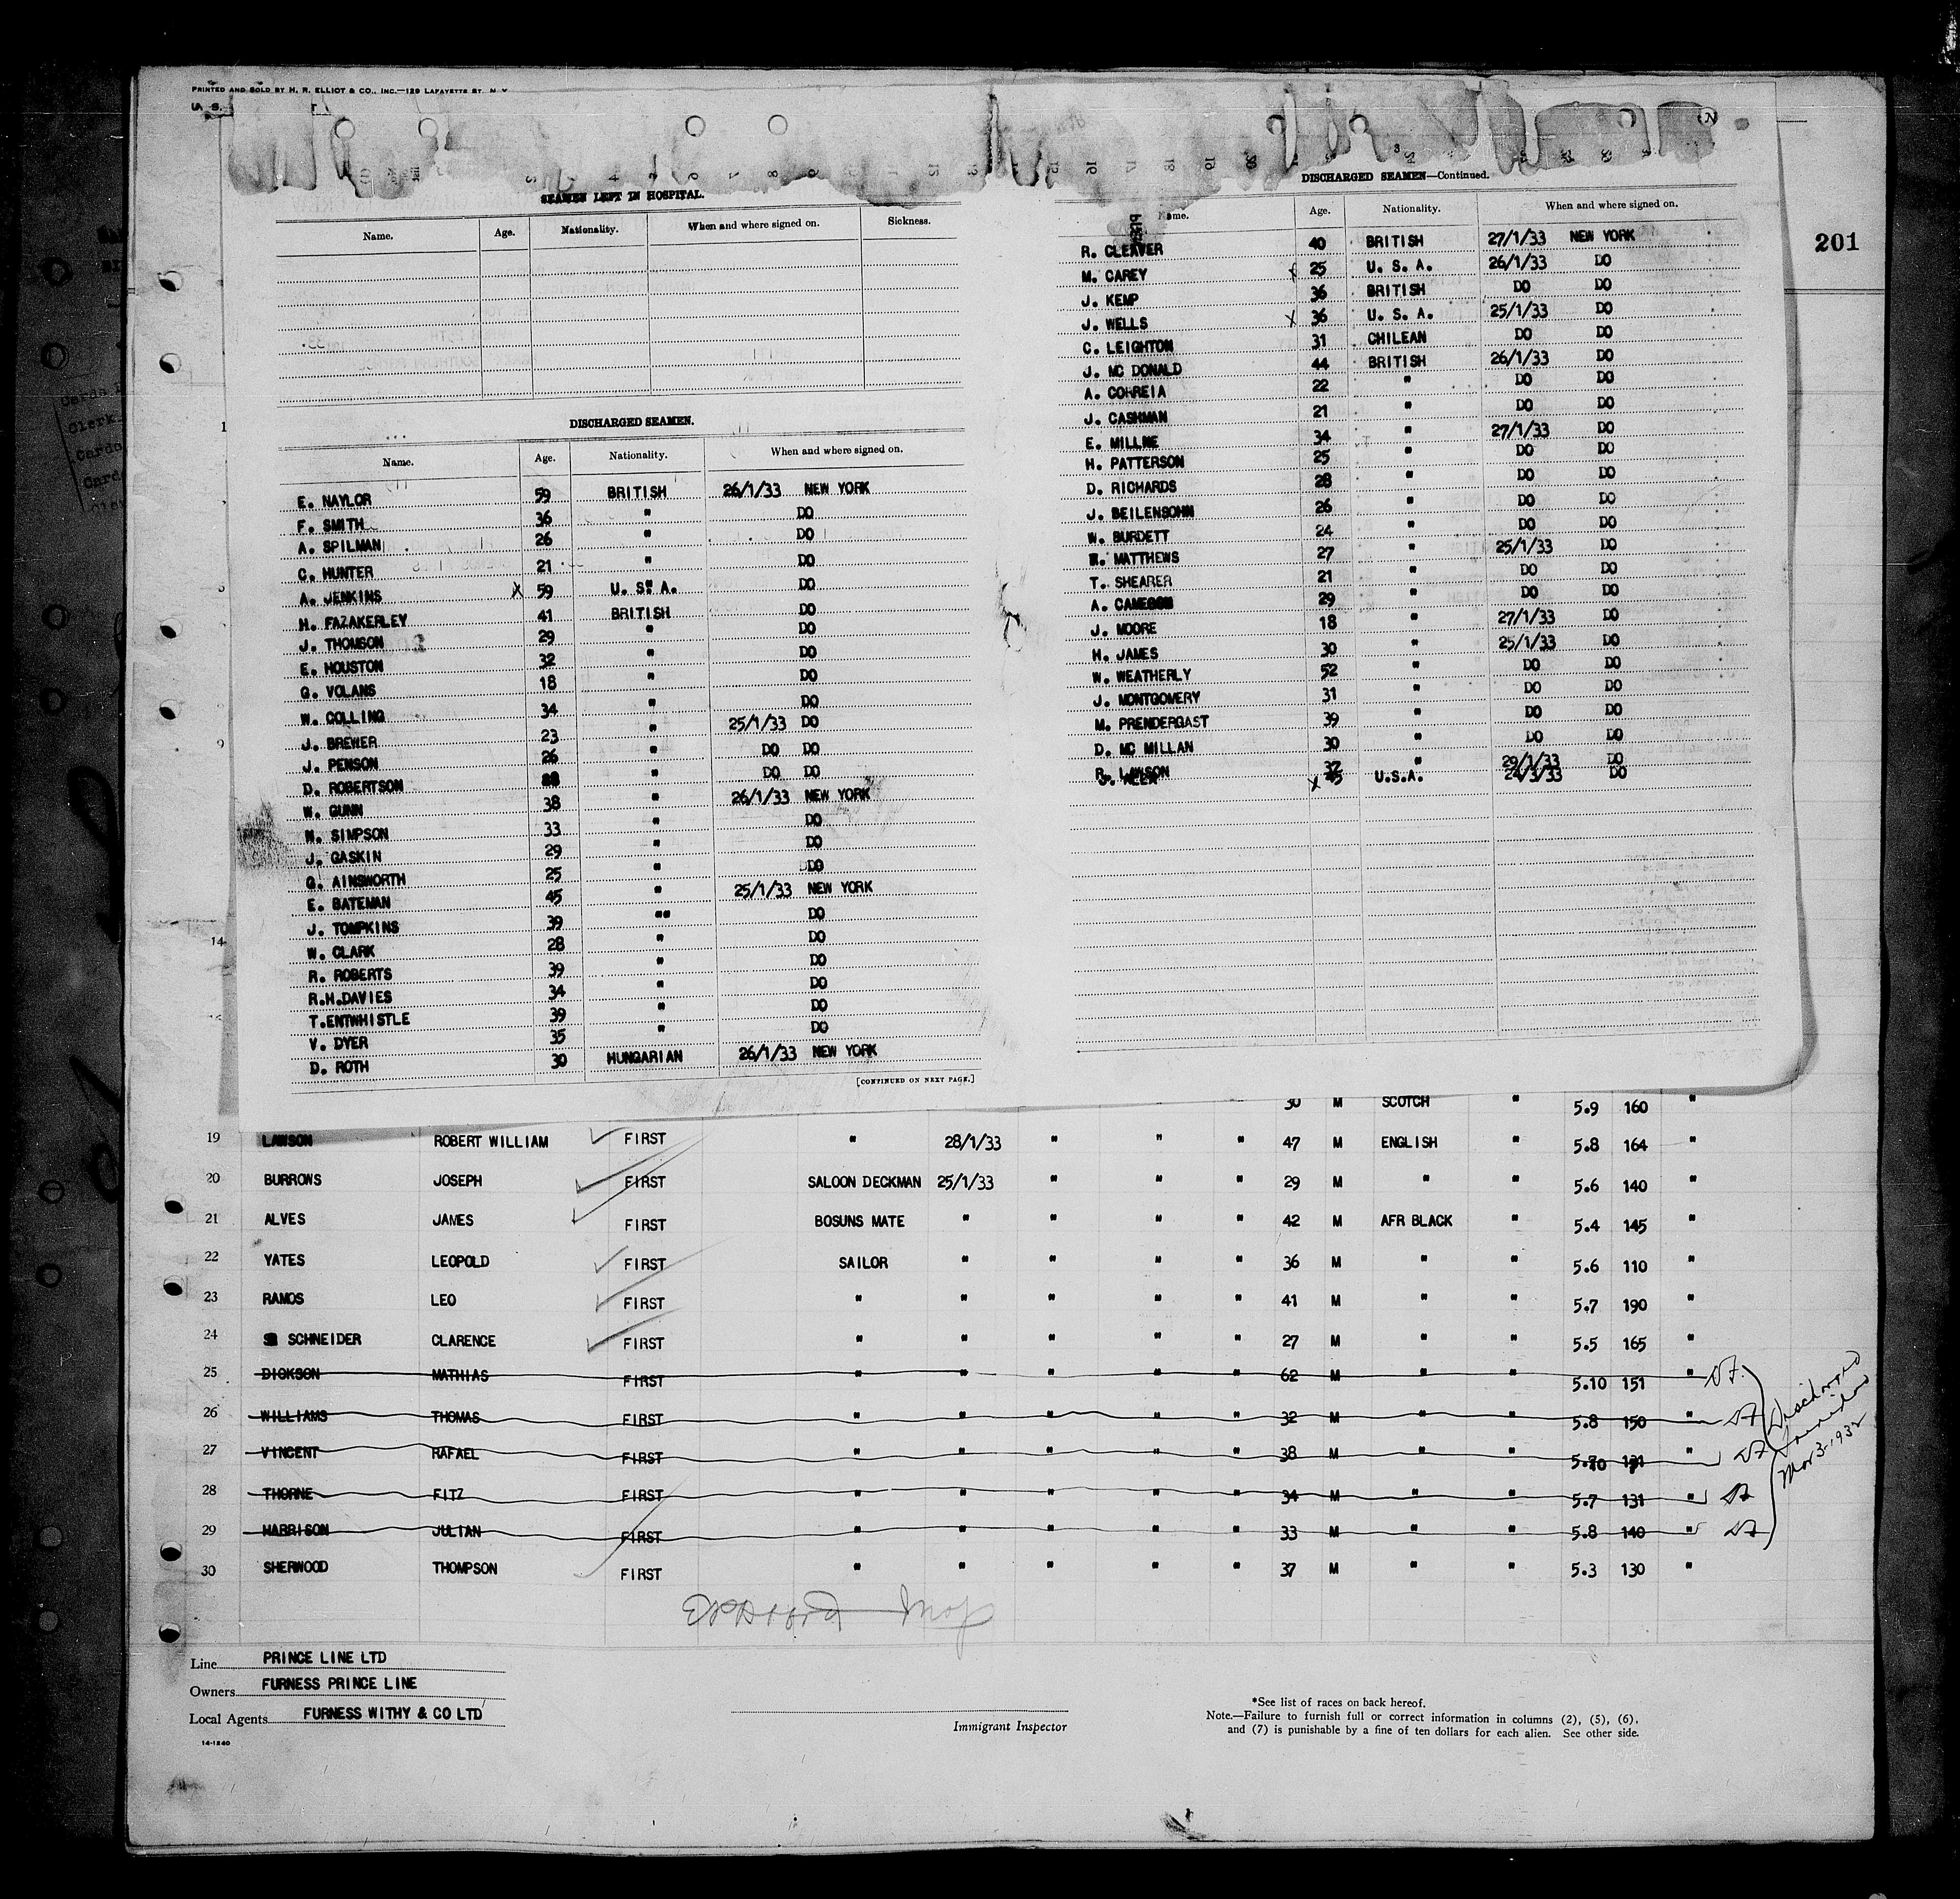 PRINTED AND SOLD BY H. R. ELLIOT & CO., INC.—129 LAFAYETTE ST. N. Y.
U. S.
201
SEAMEN LEFT IN HOSPITAL.
Name. Age. Nationality. When and where signed on. Sickness.
DISCHARGED SEAMEN.
Name. Age. Nationality. When and where signed on.
E. NAYLOR 59 BRITISH 26/1/33 NEW YORK
F. SMITH 36 " DO
A. SPILMAN 26 " DO
C. HUNTER 21 " DO
A. JENKINS X 59 U. S. A. DO
H. FAZAKERLEY 41 BRITISH DO
J. THOMSON 29 " DO
E. HOUSTON 32 " DO
G. VOLANS 18 " DO
W. COLLING 34 " DO
J. BREWER 23 " 25/1/33 DO
J. PENSON 26 " DO DO
D. ROBERTSON " DO DO
W. GUNN 38 " 26/1/33 NEW YORK
N. SIMPSON 33 " DO
J. GASKIN 29 " DO
G. AINSWORTH 25 " DO
E. BATEMAN 45 " 25/1/33 NEW YORK
J. TOMPKINS 39 "" DO
W. CLARK 28 " DO
R. ROBERTS 39 " DO
R.H.DAVIES 34 " DO
T.ENTWHISTLE 39 " DO
V. DYER 35 " DO
D. ROTH 30 HUNGARIAN 26/1/33 NEW YORK
[CONTINUED ON NEXT PAGE.]
DISCHARGED SEAMEN—Continued.
Name. Age. Nationality. When and where signed on.
R. CLEAVER 40 BRITISH 27/1/33 NEW YORK
M. CAREY 25 U. S. A. 26/1/33 DO
J. KEMP 36 BRITISH DO DO
J. WELLS X 36 U. S. A. 25/1/33 DO
C. LEIGHTON 31 CHILEAN DO DO
J. MC DONALD 44 BRITISH 26/1/33 DO
A. CORREIA 22 " DO DO
J. CASHMAN 21 " DO DO
E. MILLNE 34 " 27/1/33 DO
H. PATTERSON 25 " DO DO
D. RICHARDS 28 " DO DO
J. BEILENSOHN 26 " DO DO
W. BURDETT 24 " DO DO
MATTHEWS 27 " 25/1/33 DO
T. SHEARER 21 " DO DO
A. CAMERON 29 " DO DO
J. MOORE 18 " 27/1/33 DO
H. JAMES 30 " 25/1/33 DO
W. WEATHERLY 52 " DO DO
J. MONTGOMERY 31 " DO DO
M. PRENDERGAST 39 " DO DO
D. MC MILLAN 30 " DO DO
R. LAWSON 37 " 29/1/33 DO
X 45 U.S.A. DO
30 M SCOTCH " 5.9 160 "
19 LAWSON ROBERT WILLIAM FIRST " 28/1/33 " " " 47 M ENGLISH " 5.8 164 "
20 BURROWS JOSEPH FIRST SALOON DECKMAN 25/1/33 " " " 29 M " " 5.6 140 "
21 ALVES JAMES FIRST BOSUNS MATE " " " " 42 M AFR BLACK " 5.4 145 "
22 YATES LEOPOLD FIRST SAILOR " " " " 36 M " " 5.6 110 "
23 RAMOS LEO FIRST " " " " " 41 M " " 5.7 190 "
24 SCHNEIDER CLARENCE FIRST " " " " " 27 M " " 5.5 165 "
25 DICKSON MATHIAS FIRST " " " " " 62 M " " 5.10 151
26 WILLIAMS THOMAS FIRST " " " " " 32 M " " 5.8 150
27 VINCENT RAFAEL FIRST " " " " " 38 M " "
28 THORNE FITZ FIRST " " " " " 34 M " " 5.7 131 "
29 HARRISON JULIAN FIRST " " " " " 33 M " " 5.8 140 "
30 SHERWOOD THOMPSON FIRST " " " " " 37 M " " 5.3 130 "
Discharged
Line PRINCE LINE LTD
Owners FURNESS PRINCE LINE
Local Agents FURNESS WITHY & CO LTD
14-1240
Immigrant Inspector
*See list of races on back hereof.
Note.—Failure to furnish full or correct information in columns (2), (5), (6),
and (7) is punishable by a fine of ten dollars for each alien. See other side.